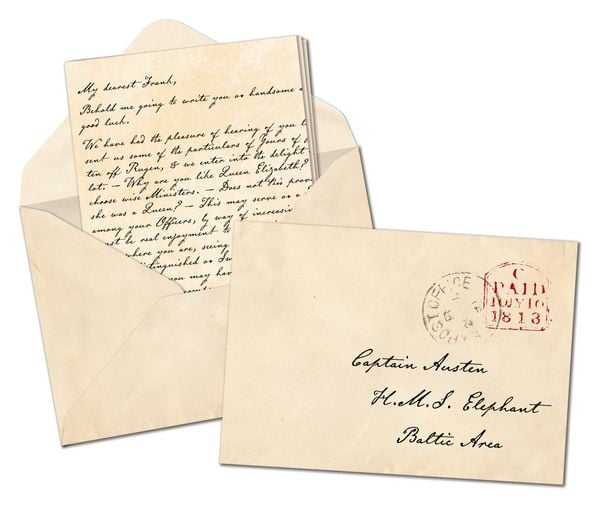 My dearest Frank,
Behold me going to write you as handsome a
good luck.
We have had the pleasure of hearing of you l
sent us some of the particulars of yours of
ten off Rugen, & we enter into the delight
lot. — Why are you like Queen Elizabeth?
choose wise Ministers. — Does not this prov
she was a Queen? — This may serve as a
among your Officers, by way of increasin
st be real enjoyment to
where you are, seeing
tinguished as Sw
you may hav
POST OFFICE
C
PAID
10 JY 10
1813
Captain Austen
H.M.S. Elephant
Baltic Area